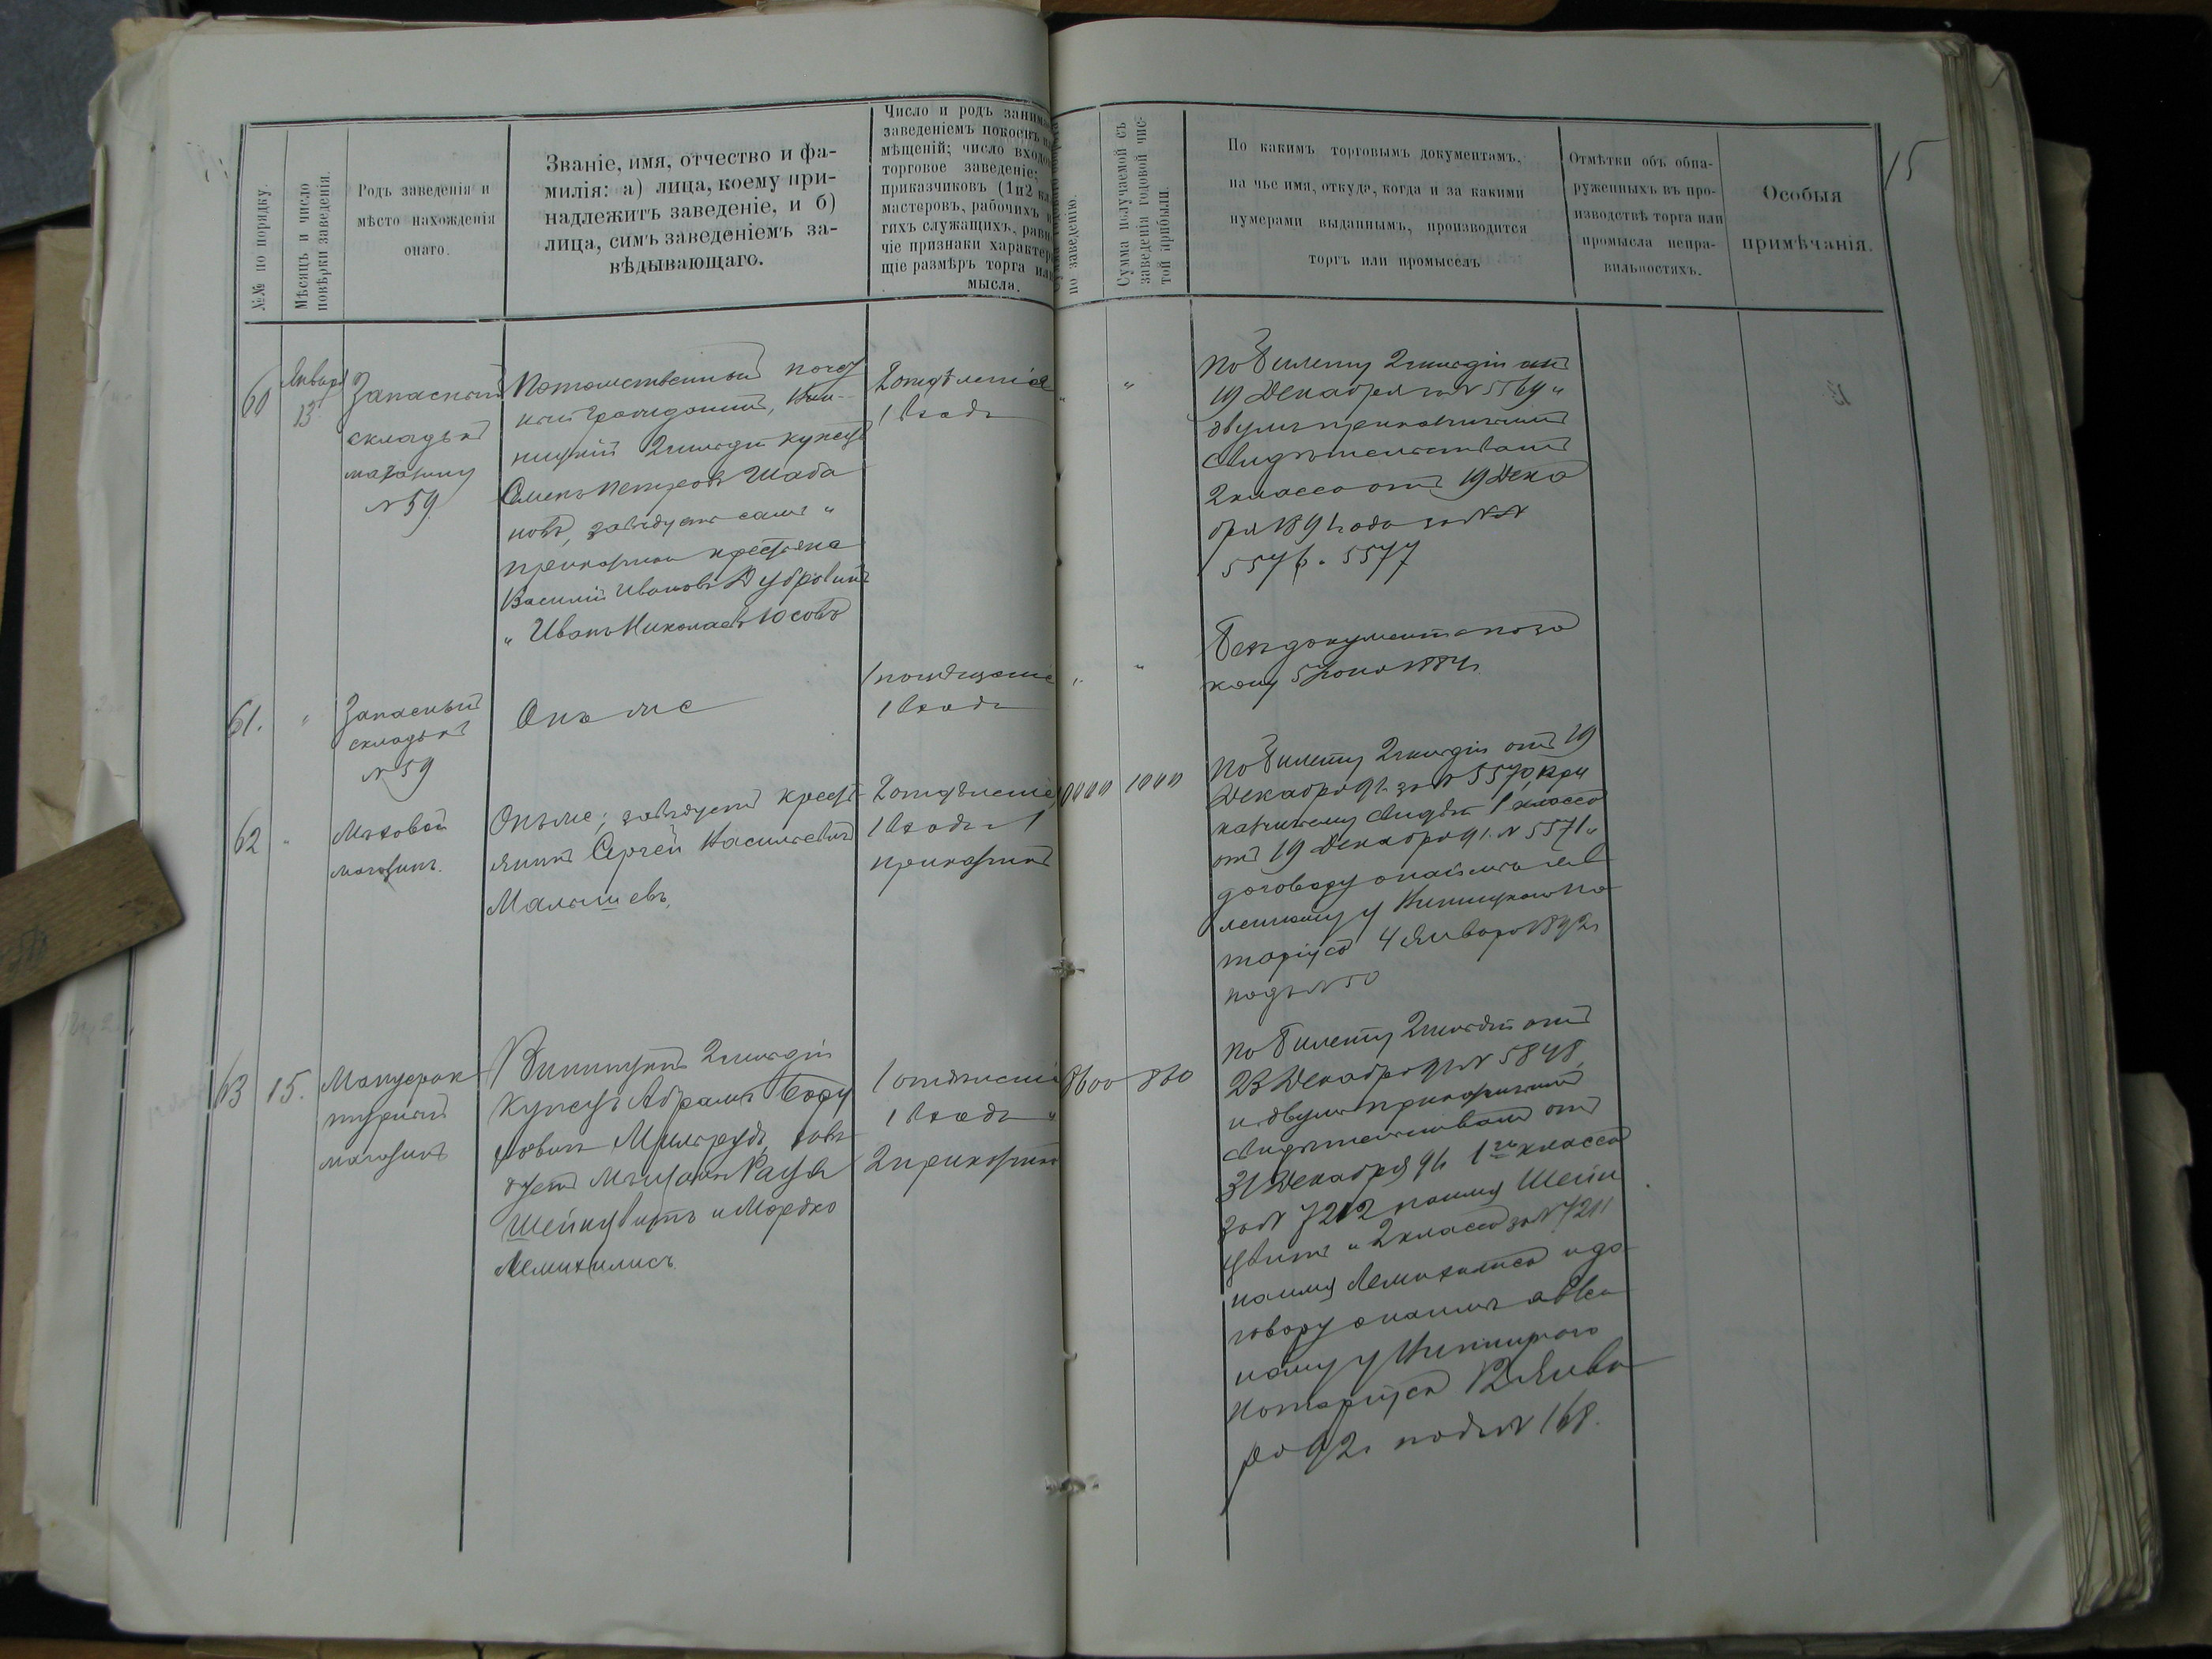 15
№№ по порядку.
Мѣсяцъ и число
повѣрки заведенія.
Родъ заведенія и
мѣсто нахожденія
онаго.
Званіе, имя, отчество и фа-
милія: а) лица, коему при-
надлежитъ заведеніе, и б)
лица, симъ заведеніемъ за-
вѣдывающаго.
Число и родъ заним
заведеніемъ покоевъ
мѣщеній; число входо
торговое заведеніе;
приказчиковъ (1 и 2 кл
мастеровъ, рабочихъ
гихъ служащихъ, рав
чіе признаки характер
щіе размѣръ торга или
мысла.
по заведенію.
Сумма получаемой съ
заведенія годовой чис-
той прибыли.
По какимъ торговымъ документамъ,
на чье имя, откуда, когда и за какими
нумерами выданнымъ, производится
торгъ или промыселъ
Отмѣтки объ обна-
руженныхъ въ про-
изводствѣ торга или
промысла непра-
вильностяхъ.
Особыя
примѣчанія.
60
Января
13
Запасный
складъ къ
магазину
№ 59.
Потомственный поче
ный гражданинъ, Вин-
ницкій 2 гильдіи купецъ
Семенъ Петровъ Шаба
новъ, завѣдуетъ самъ и
приказчики крестьяне
Василій Ивановъ Дубровинъ
и Иванъ Николаевъ Юсовъ
2 отдѣленія
1 входъ
" "
По билету 2 гильдіи отъ
19 Декабря за № 5569 и
двумъ приказчичьимъ
свидѣтельствамъ
2 класса отъ 19 Дека
бря 1891 года за №№
5576 и 5577
61.
"
Запасный
складъ къ
№ 59
Онъ же
1 помѣщеніе
1 входъ
" "
Безъ документа по за
кону 5 Іюня 1884 г.
62
"
Мѣховой
магазинъ.
Онъ же; завѣдуетъ крест
янинъ Сергей Васильевичъ
Малышевъ,
2 отдѣленіе
1 входъ и 1
приказчикъ
10000
1000
По билету 2 гильдіи отъ 19
Декабря 91 г. за № 5570, при
казчичьему свидѣт. 1 класса
отъ 19 Декабря 91 г. № 5571 и
договору о наймѣ явл
ленному у Винницкаго но
таріуса 4 Января 1892 г.
подъ № 50
63
15.
Мануфак
турный
магазинъ
Винницкій 2 гильдіи
купецъ Абрамъ
завѣ
дуетъ мѣщане
Шейнцвитъ и Мордко
Лемихилисъ.
1 отдѣленіе
1 входъ и
2 приказчика
8600
860
По билету 2 гильдіи отъ
23 Декабря 91 № 5848,
и двумъ приказчичьимъ
свидѣтельствамъ отъ
31 Декабря 91 г. 1го класса
за № 7212 на имя Шейн
цвитъ и 2 класса за № 7211
на имя Лемихилиса и до
говору о наймѣ явлен
ному у Винницкаго
Нотаріуса 12 Янва
ря 92 г. подъ № 168.